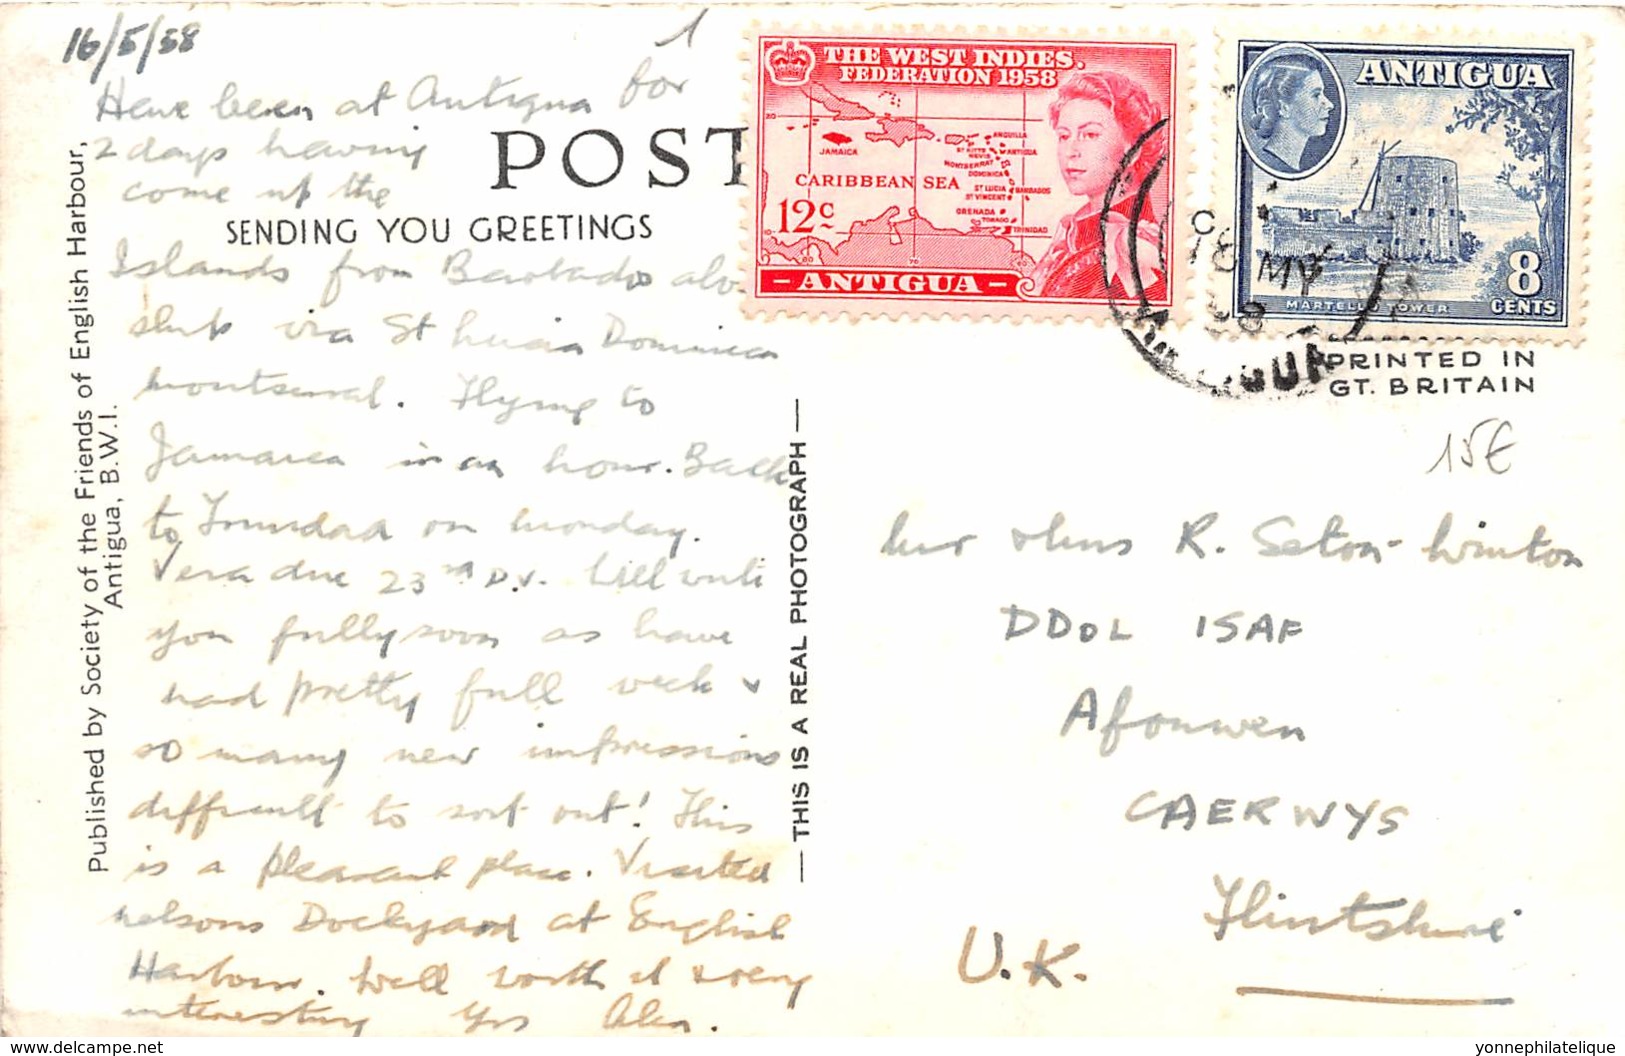 16/5/58
1
Have been at Antigua for
2 days having
come up the
POST
SENDING YOU GREETINGS
Islands from Barbados
ship via St Lucia Dominica
Montserrat. Flying to
Jamaica in an hour. Back
to Trinidad on Monday.
Vera due 23rd D.V. Will write
you fully soon as have
had pretty full week &
so many new impressions
difficult to sort out! This
is a pleasant place. Visited
Nelsons Dockyard at English
Harbour. Well worth it & very
interesting Yrs Alan.
Published by Society of the Friends of English Harbour,
Antigua, B.W.I.
— THIS IS A REAL PHOTOGRAPH —
THE WEST INDIES.
FEDERATION 1958
JAMAICA
ANGUILLA
ST KITTS
NEVIS
ANTIGUA
MONTSERRAT
DOMINICA
CARIBBEAN SEA
ST LUCIA
BARBADOS
ST VINCENT
GRENADA
TOBAGO
TRINIDAD
12c
- ANTIGUA -
ANTIGUA
8
CENTS
MARTELLO TOWER
18 MY
58
PRINTED IN
GT. BRITAIN
15€
R. Seton-Winton
DDOL ISAF
Afonwen
CAERWYS
Flintshire
U.K.
delcampe.net
yonnephilatelique